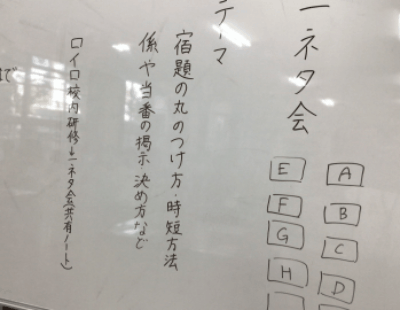 一ネタ会
テーマ
宿題の丸のつけ方・時短方法
係や当番の掲示 決め方など
ロイロ校内研修↓一ネタ会(共有ノート)
で
A
B
C
D
E
F
G
H